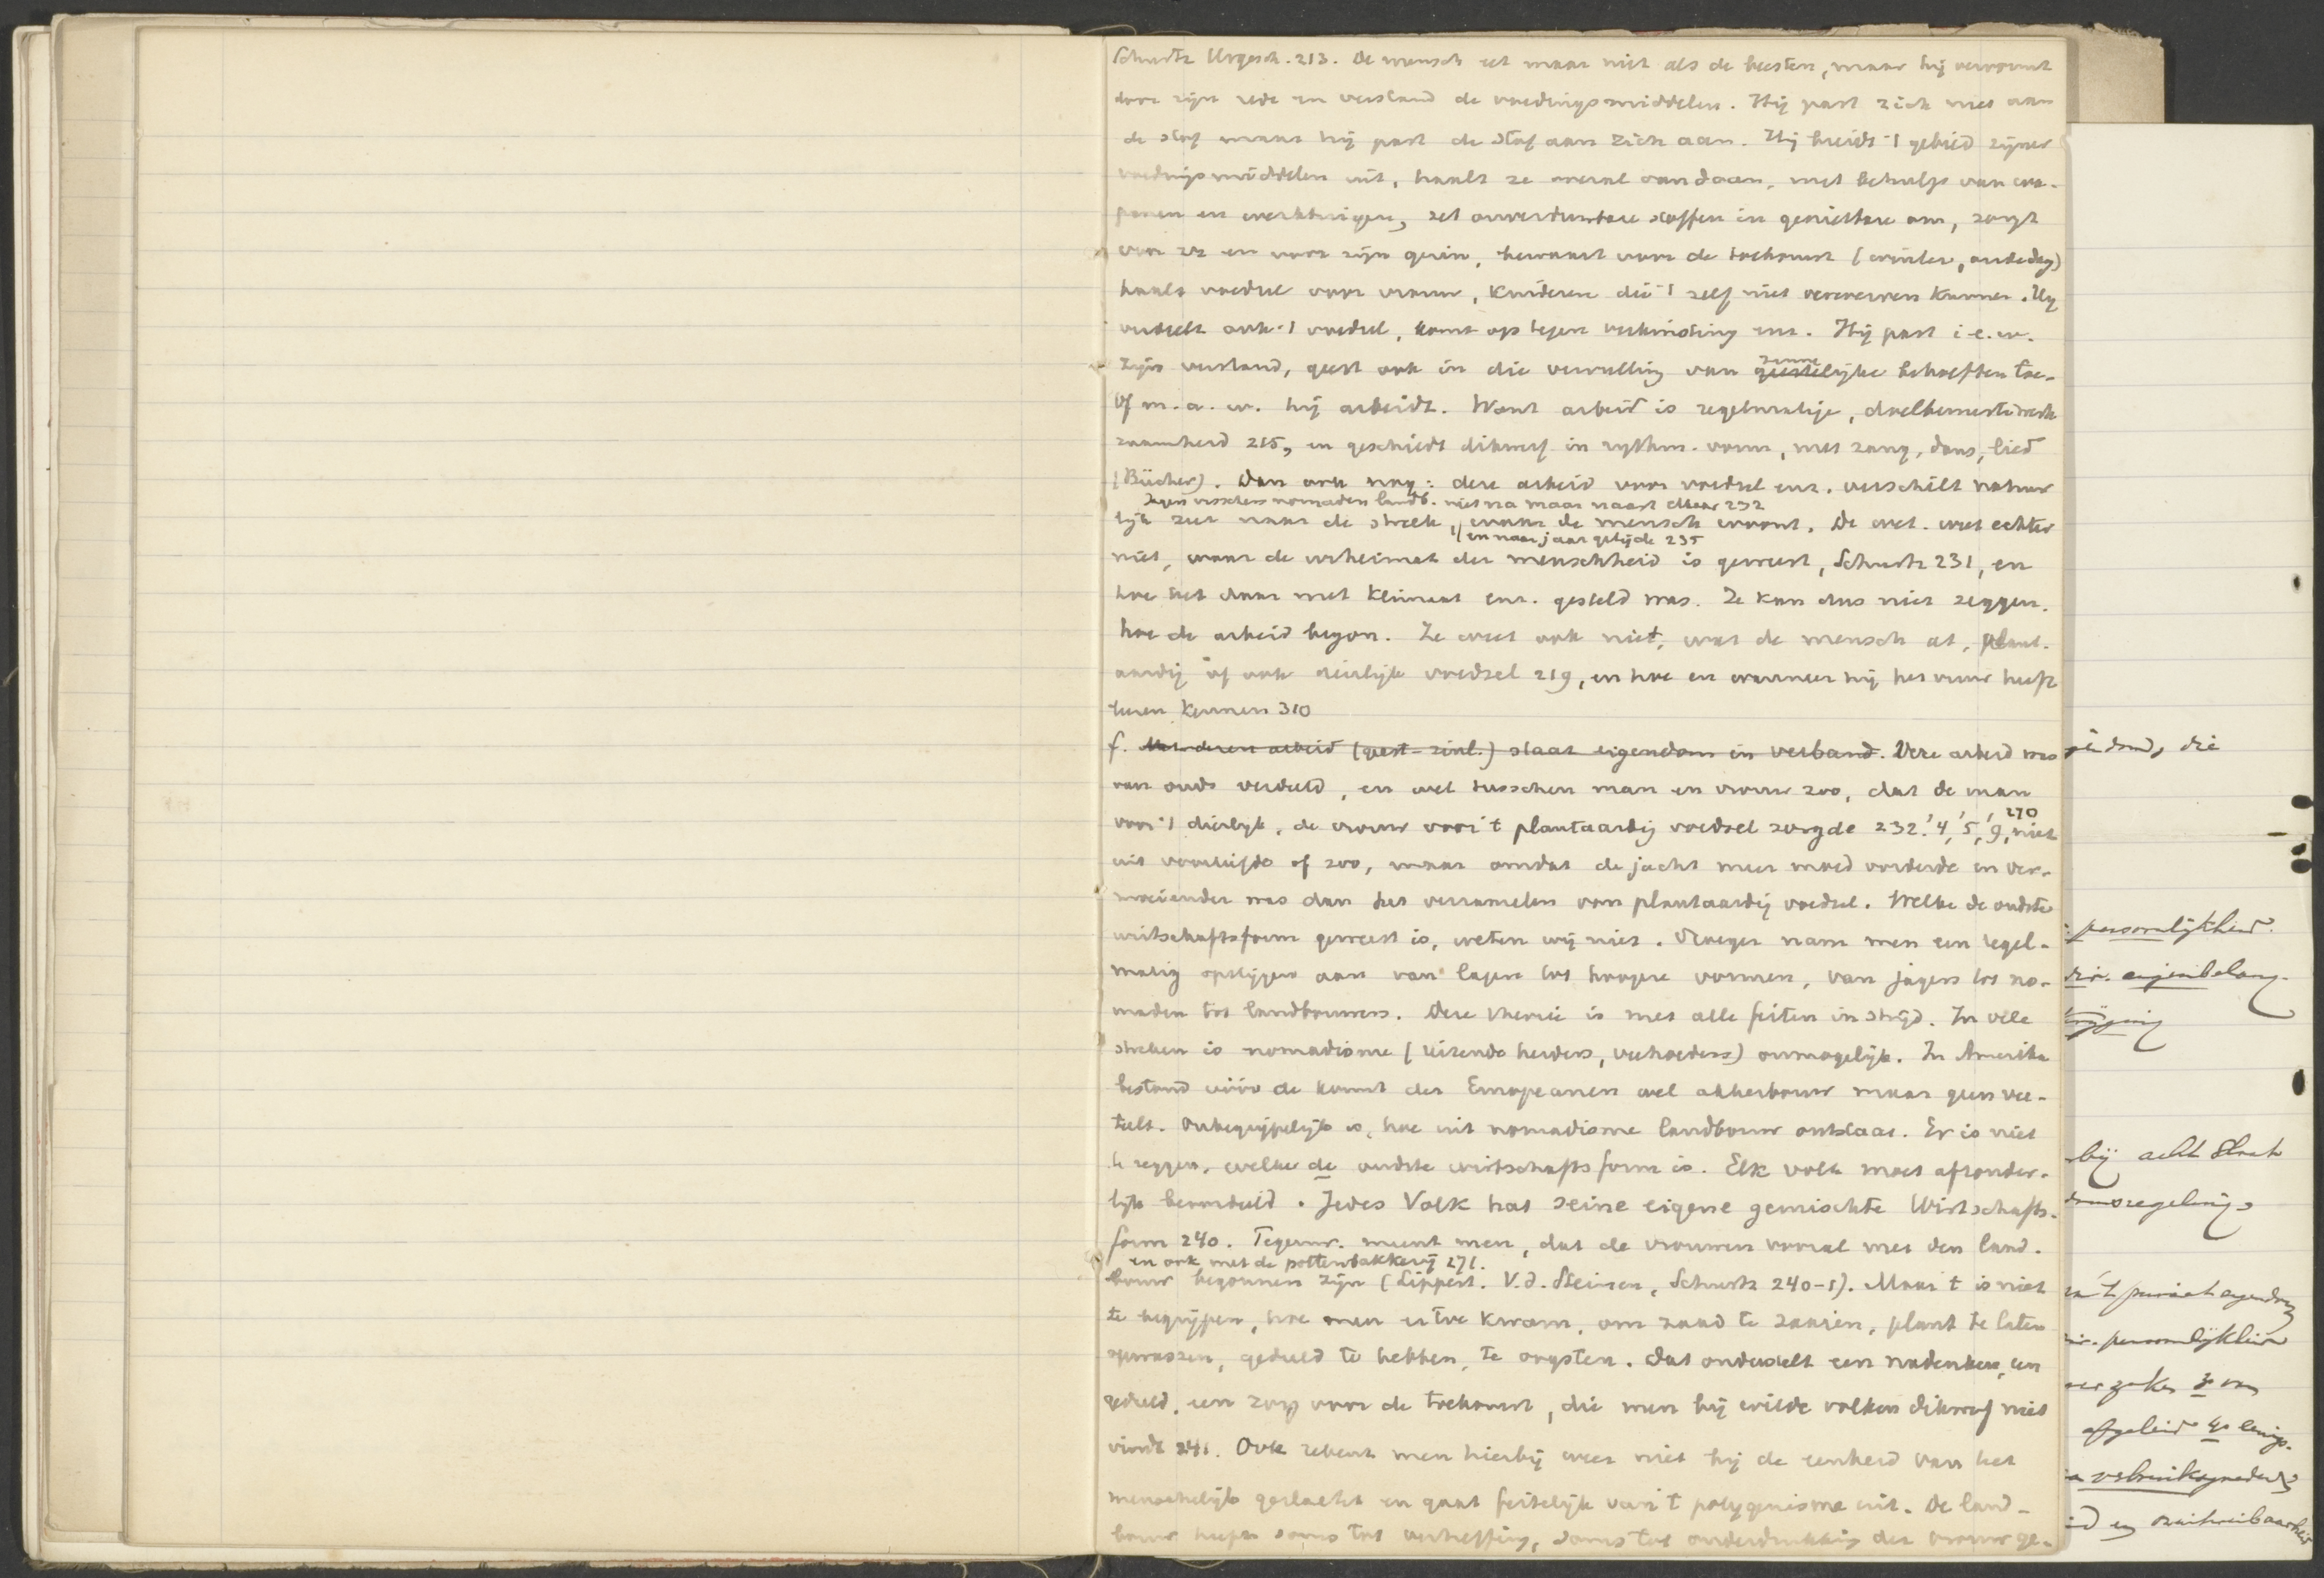 Schurtz Urgesch. 213. De mensch eet maar niet als de beesten, maar hij vervormt
door zijn rede en verstand de voedingsmiddelen. Hij past zich niet aan
de stof maar hij past de stof aan zich aan. Hij breidt 't gebied zijner
voedingsmiddelen uit, haalt ze overal vandaan, met behulp van wa-
penen en werktuigen, zet onverduwbare stoffen in genietbare om, zorgt
voor zich en voor zijn gezin, bewaart voor de toekomst (winter, oudedag)
haalt voedsel voor vrouw, kinderen die 't zelf niet verwerven kunnen. Hij
verdeelt ook 't voedsel, komt op tegen verkwisting enz. Hij past i. e. w.
zijn verstand, geest ook in die vervulling van zinnelijke behoeften toe.
Of m. a. w. hij arbeidt. Want arbeid is regelmatige, doelbewuste werk
zaamheid 215, en geschiedt dikwerf in rythm. vorm, met zang, dans, lied
(Bücher). Dan ook nog: deze arbeid voor voedsel enz. verschilt natuur
jagers visschers nomaden landb. niet na maar naast elkaar 232
lijk zeer naar de streek, waar de mensch woont. De wet. weet echter
en naar jaargetijde 235
niet, waar de urheimat der menschheid is geweest, Schurtz 231, en
hoe het daar met klimaat enz. gesteld was. Ze kan dus niet zeggen.
hoe de arbeid begon. Ze weet ook niet, wat de mensch at, plant-
aardig of ook dierlijk voedsel 219, en hoe en wanneer hij het vuur heeft
leeren kennen 310
f. Met dezen arbeid (geest-zinl.) staat eigendom in verband. Deze arbeid was
van ouds verdeeld, en wel tusschen man en vrouw zoo, dat de man
voor 't dierlijk, de vrouw voor 't plantaardig voedsel zorgde 232. 4, 5, 9, 270 niet
uit voorliefde of zoo, maar omdat de jacht meer moed vorderde en ver-
moeiender was dan het verzamelen van plantaardig voedsel. Welke de oudste
wirtschaftsform geweest is, weten wij niet. Vroeger nam men een regel-
matig opstijgen aan van lagere tot hoogere vormen, van jagers tot no-
maden tot landbouwers. Deze theorie is met alle feiten in strijd. In vele
streken is nomadisme (reizende herders, veehoeders) onmogelijk. In Amerika
bestond vóór de komst der Europeanen wel akkerbouw maar geen vee-
teelt. Onbegrijpelijk is, hoe uit nomadisme landbouw ontstaat. Er is niet
te zeggen, welke de oudste wirtschaftsform is. Elk volk moet afzonder-
lijk beoordeeld. Jedes Volk hat seine eigene gemischte Wirtschafts-
form 240. Tegenw. meent men, dat de vrouwen vooral met den land-
en ook met de pottenbakkerij 271.
bouw begonnen zijn (Lippert. V. d. Steinen, Schurtz 240-1). Maar 't is niet
te begrijpen, hoe men er toe kwam, om zaad te zaaien, plant te laten
opwassen, geduld te hebben, te oogsten. Dat onderstelt een nadenken, een
geduld, een zorg voor de toekomst, die men bij wilde volken dikwerf niet
vindt 241. Ook rekent men hierbij weer niet bij de eenheid van het
menschelijk geslacht en gaat feitelijk van 't polygenisme uit. De land-
bouw heeft soms tot verheffing, soms tot onderdrukking der vrouw ge-
die
persoonlijkheid.
eigenbelang.
bij acht Slaat
regeling
't privaat eigendom
persoonlijkheid
zaken 3o van
afgeleid 4o